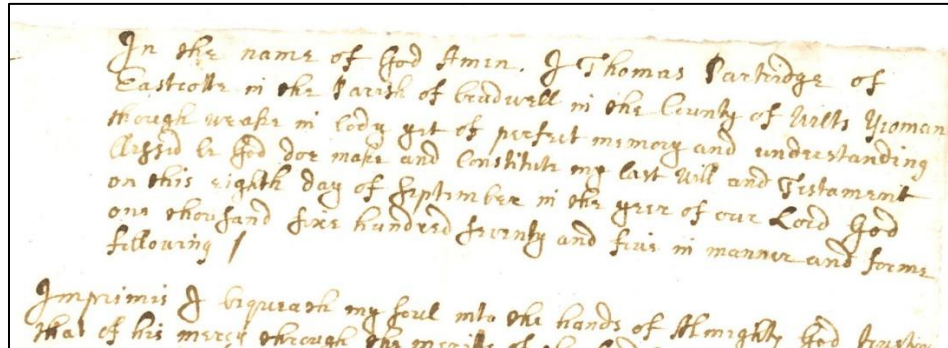 In the name of God Amen. I Thomas Partridge of
Eastcott in the Parish of in the County of Wilts Yeoman
though weake in body yet of perfect memory and understanding
blessed be God doe make and Constitute my last Will and Testament
on this eighth day of September in the yeer of our Lord God
one thousand sixe hundred seventy and five in manner and forme
following /
Imprimis I bequeath my soul into the hands of Almighty God
that of his mercy through the merits of